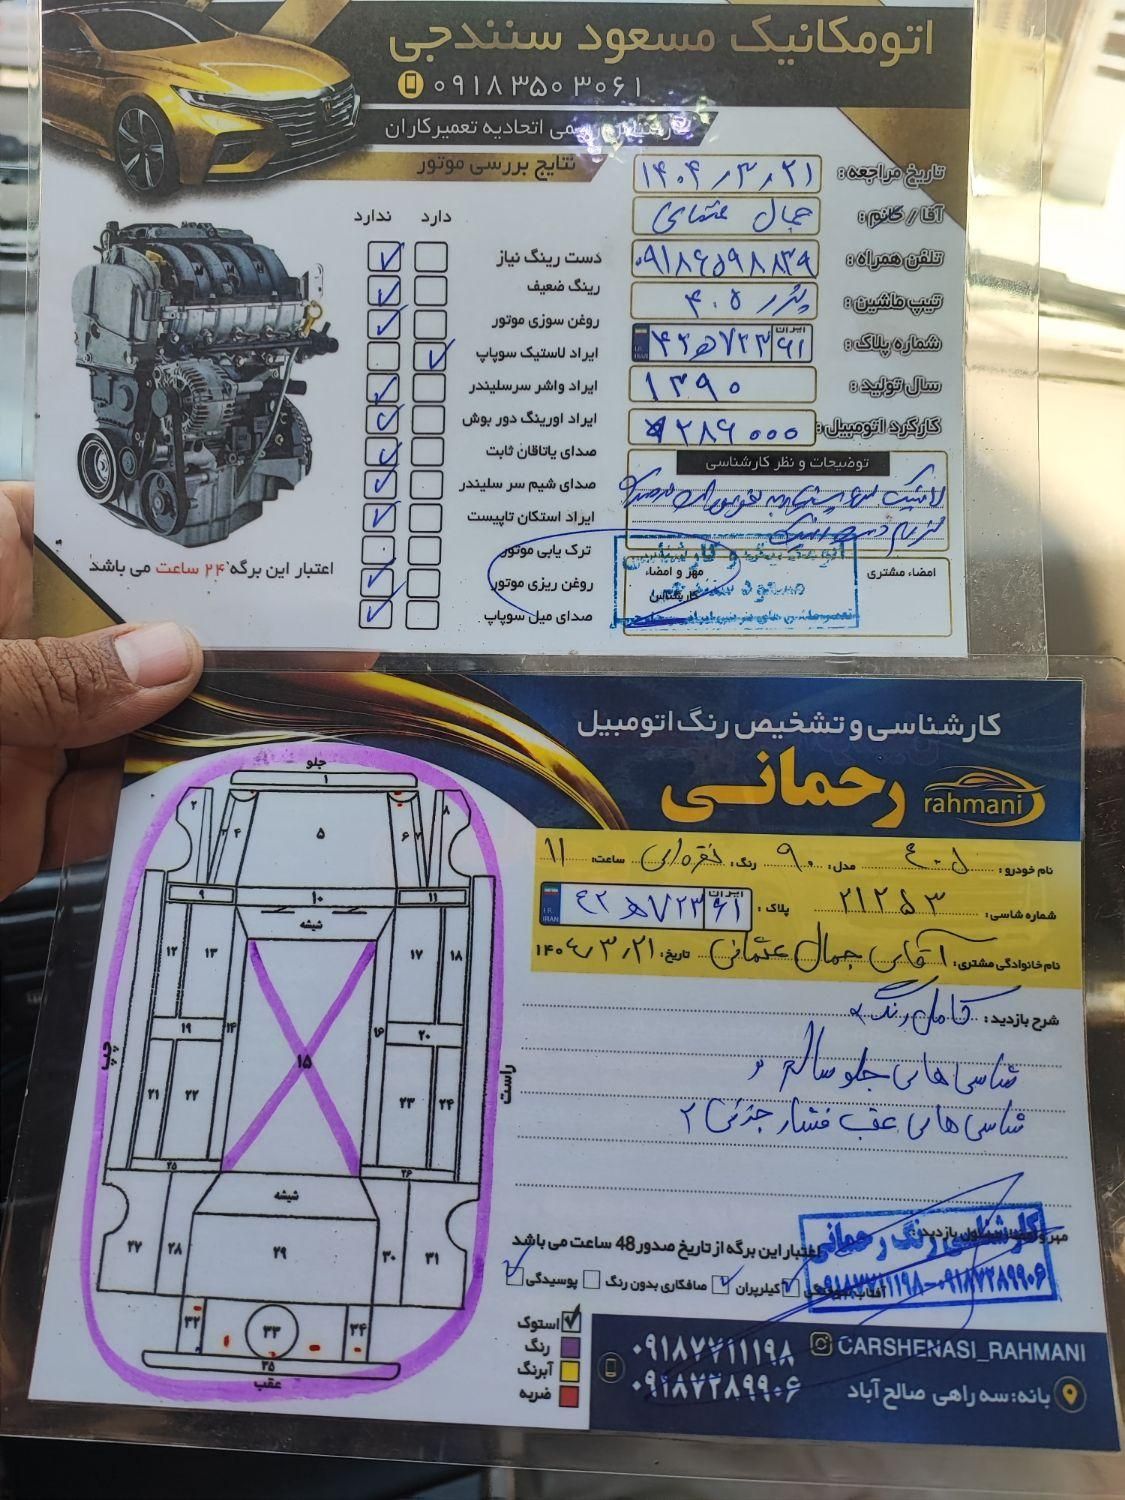 اتومکانیک مسعود سنندجی
۰۹۱۸ ۳۵۰ ۳۰۶۱
کارشناس رسمی اتحادیه تعمیرکاران
نتایج بررسی موتور
دارد ندارد
دست رینگ نیاز
رینگ ضعیف
روغن سوزی موتور
ایراد لاستیک سوپاپ
ایراد واشر سرسلیندر
ایراد اورینگ دور بوش
صدای یاتاقان ثابت
صدای شیم سر سلیندر
ایراد استکان تایپیت
ترک یابی موتور
روغن ریزی موتور
صدای میل سوپاپ
اعتبار این برگه ۲۴ ساعت می باشد
تاریخ مراجعه: ۱۴۰۴/۳/۲۱
آقا/خانم: جمال عثمانی
تلفن همراه: ۰۹۱۸۶۵۹۸۸۳۹
تیپ ماشین: پژو ۴۰۵
شماره پلاک: ۴۲ ه ۷۲۳ ایران ۶۱
I.R. IRAN
سال تولید: ۱۳۹۰
کارکرد اتومبیل: ۲۸۶۰۰۰
توضیحات و نظر کارشناسی
مهر و امضاء کارشناس
امضاء مشتری
اتومکانیک و کارشناسی
مسعود سنندجی
کارشناسی و تشخیص رنگ اتومبیل
رحمانی
rahmani
نام خودرو: ۴۰۵ مدل: ۹۰ رنگ: نقره‌ای ساعت: ۱۱
شماره شاسی: ۲۱۲۵۳ پلاک: ۴۲ ه ۷۲۳ ایران ۶۱
I.R. IRAN
نام خانوادگی مشتری: آقای جمال عثمانی تاریخ: ۱۴۰۴/۳/۲۱
شرح بازدید: کامل رنگ
شاسی های جلو سالم و
شاسی های عقب فشار جزئی
جلو
۱
۲ ۳ ۴ ۵ ۶ ۷ ۸
۹ ۱۰ ۱۱
شیشه
۱۲ ۱۳ ۱۷ ۱۸
۱۹ ۱۴ ۱۶ ۲۰
چپ ۱۵ راست
۲۱ ۲۲ ۲۳ ۲۴
۲۵ ۲۶
شیشه
۲۷ ۲۸ ۲۹ ۳۰ ۳۱
۳۲ ۳۳ ۳۴
۳۵
عقب
اعتبار این برگه از تاریخ صدور 48 ساعت می باشد
آفتاب سوختگی کیلرپران صافکاری بدون رنگ پوسیدگی
کارشناسی رنگ رحمانی
۰۹۱۸۷۷۱۱۱۹۸-۰۹۱۸۷۲۸۹۹۰۶
استوک
رنگ
آبرنگ
ضربه
۰۹۱۸۷۷۱۱۱۹۸
۰۹۱۸۷۲۸۹۹۰۶
CARSHENASI_RAHMANI
بانه: سه راهی صالح آباد